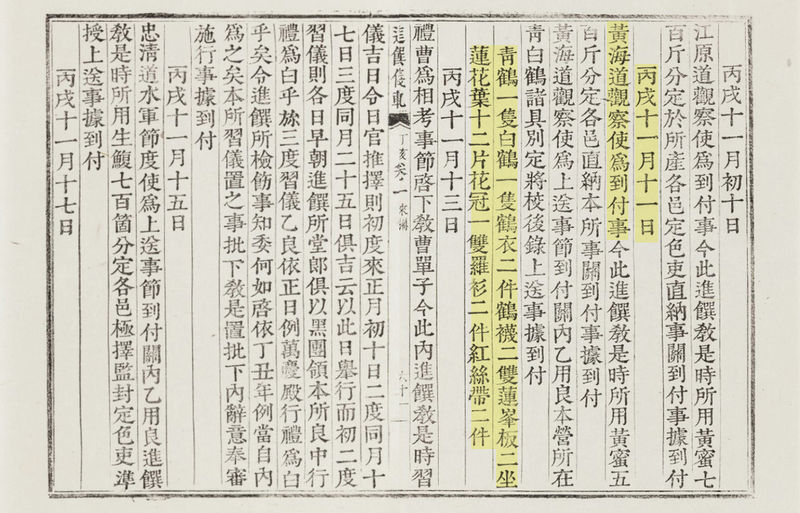 丙戌十一月初十日
江原道觀察使爲到付事今此進饌敎是時所用黃蜜七
百斤分定於所產各邑定色吏直納事關到付事據到付
丙戌十一月十一日
黃海道觀察使爲到付事今此進饌敎是時所用黃蜜五
百斤分定各邑直納本所事關到付事據到付
黃海道觀察使爲上送事節到付關內乙用良本營所在
靑白鶴諸具別定將校後錄上送事據到付
靑鶴一隻白鶴一隻鶴衣二件鶴襪二雙蓮峯板二坐
蓮花葉十二片花冠一雙羅衫二件紅絲帶二件
丙戌十一月十三日
禮曹爲相考事節啓下敎曹單子今此內進饌敎是時習
進饌儀軌 丁亥 卷一 來關 六十一
儀吉日令日官推擇則初度來正月初十日二度同月十
七日三度同月二十五日俱吉云以此日舉行而初二度
習儀則各日早朝進饌所堂郎俱以黑團領本所良中行
禮爲白乎旀三度習儀乙良依正日例萬慶殿行禮爲白
乎矣今進饌所檢飭事知委何如啓依丁丑年例當自內
爲之矣本所習儀置之事批下敎是置批下內辭意奉審
施行事據到付
丙戌十一月十五日
忠淸道水軍節度使爲上送事節到付關內乙用良進饌
敎是時所用生鰒七百箇分定各邑極擇監封定色吏準
授上送事據到付
丙戌十一月十七日